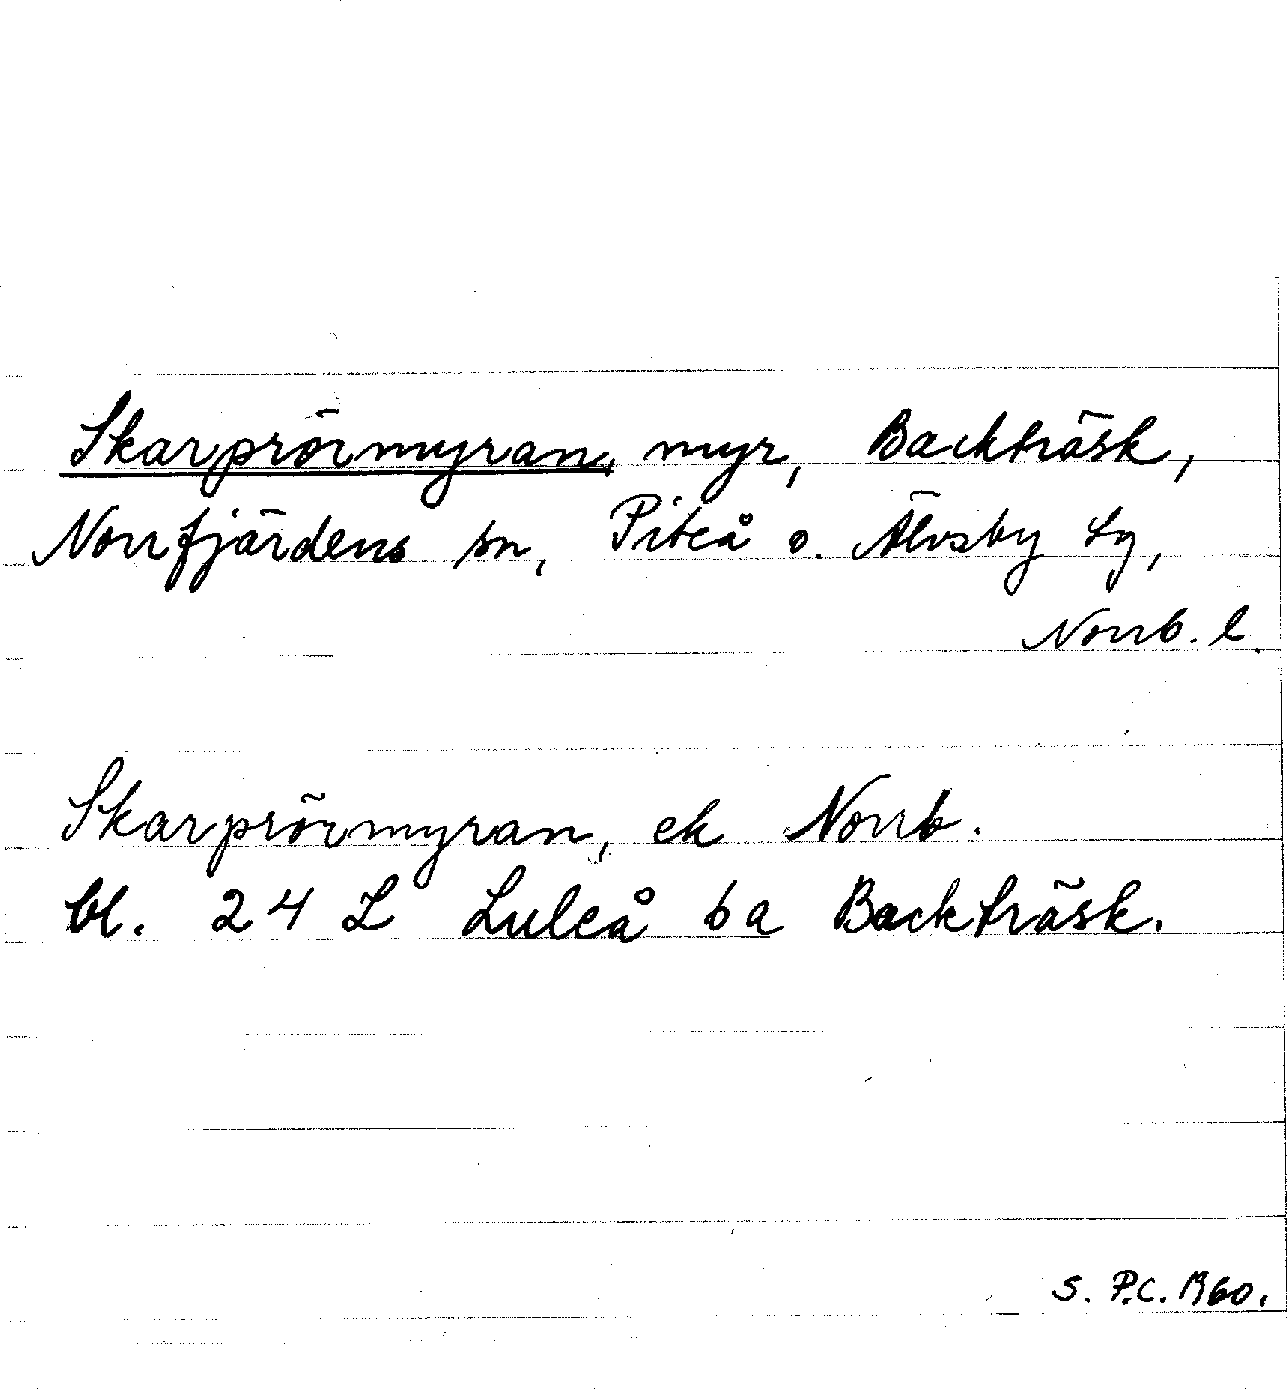 Skarprörmyran, myr, Backträsk,
Norrfjärdens sn, Piteå o. Älvsby tg,
Norrb. l.
Skarprörmyran, ek Norrb.
bl. 24 L Luleå 6a Backträsk.
S. P.C. 1960.